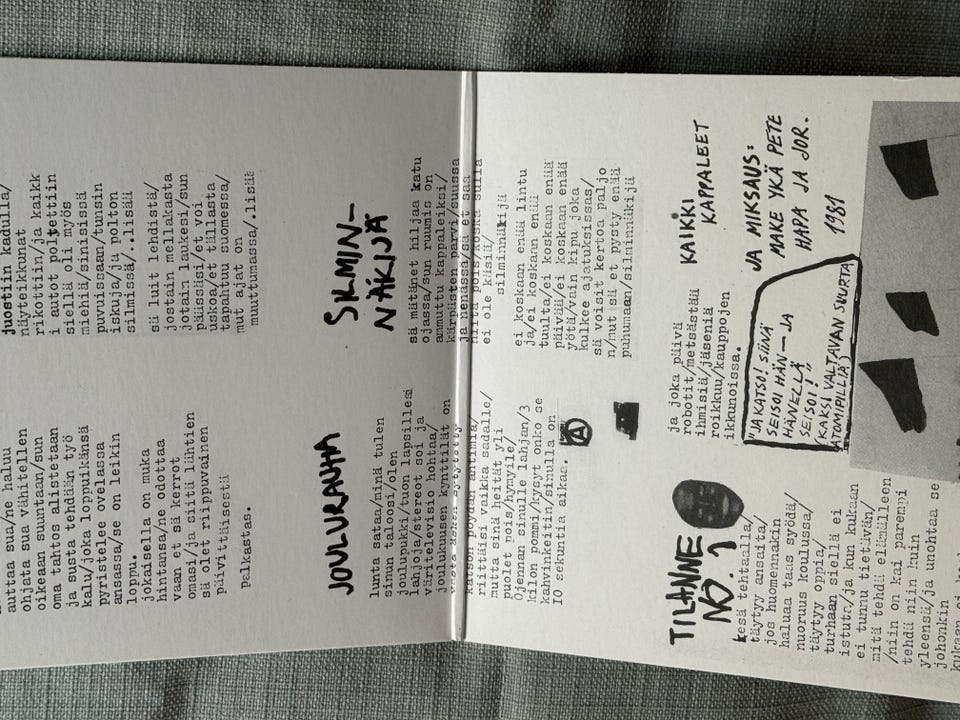 auttaa sua/ne haluu
ohjata sua vähitellen
oikeaan suuntaan/sun
oma tahtos alistetaan
ja susta tehdään työ
kalu/joka loppuikänsä
pyristelee ovelassa
ansassa/se on leikin
loppu.
jokaisella on muka
hintansa/ne odottaa
vaan et sä kerrot
omasi/ja siitä lähtien
sä olet riippuvainen
päivittäisestä
palkastas.
JOULURAUHA
lunta sataa/minä tulen
sinun taloosi/olen
joulupukki/tuon lapsillesi
lahjoja/stereot soi ja
väritelevisio hohtaa/
joulukuusen kynttilät on
riittäisi vaikka sadalle/
mutta sinä heität yli
puolet pois/hymyile/
Ojennan sinulle lahjan/3
kilon pommi/kysyt onko se
kahvinkeitin/sinulla on
IO sekuntia aikaa.
A
juostiin kadulla/
näyteikkunat
rikottiin/ja kaikk
i autot polkettiin
siellä oli myös
miehiä/sinisissä
puvuissaan/tunsin
iskuja/ja polton
silmissä/..lisää
sä luit lehdistä/
jostain mellakasta
jotain laukesi/sun
päässäsi/et voi
uskoa/et tällasta
tapahtuu suomessa/
mut ajat on
muuttumassa/.lisää
SILMIN-
NÄKIJÄ
sä mätänet hiljaa katu
ojassa/sun ruumis on
ammuttu kappaleiksi/
kärpästen parvi/suussa
ja nenässä/sä et saa
niitä pois/koska sulla
ei ole käsiä/
silminnäkijä
ei koskaan enää lintu
ja/ei koskaan enää
tuulta/ei koskaan enää
päivää/ei koskaan enää
yötä/vain kipu joka
kulkee ajatuksissas/
sä voisit kertoa paljo
n/mut sä et pysty enää
puhumaan/silminnäkijä
TILANNE
NO. 1
kesä tehtaalla/
täytyy ansaita/
jos huomennakin
haluaa taas syödä/
nuoruus koulussa/
täytyy oppia/
turhaan siellä ei
istuta/ja kun kukaan
ei tunnu tietävän/
mitä tehdä elämälleen
/niin on kai parempi
tehdä niin kuin
yleensä/ja unohtaa se
johonkin
ja joka päivä
robotit/metsästää
ihmisiä/jäseniä
roikkuu/kauppojen
ikkunoissa.
"JA KATSO! SIINÄ
SEISOI HÄN - JA
HÄNELLÄ
SEISOI!"
(KAKSI VALTAVAN SUURTA
ATOMIPILLIÄ)
KAIKKI
KAPPALEET
JA MIKSAUS:
MAKE YKÄ PETE
HARA JA JOR.
1981